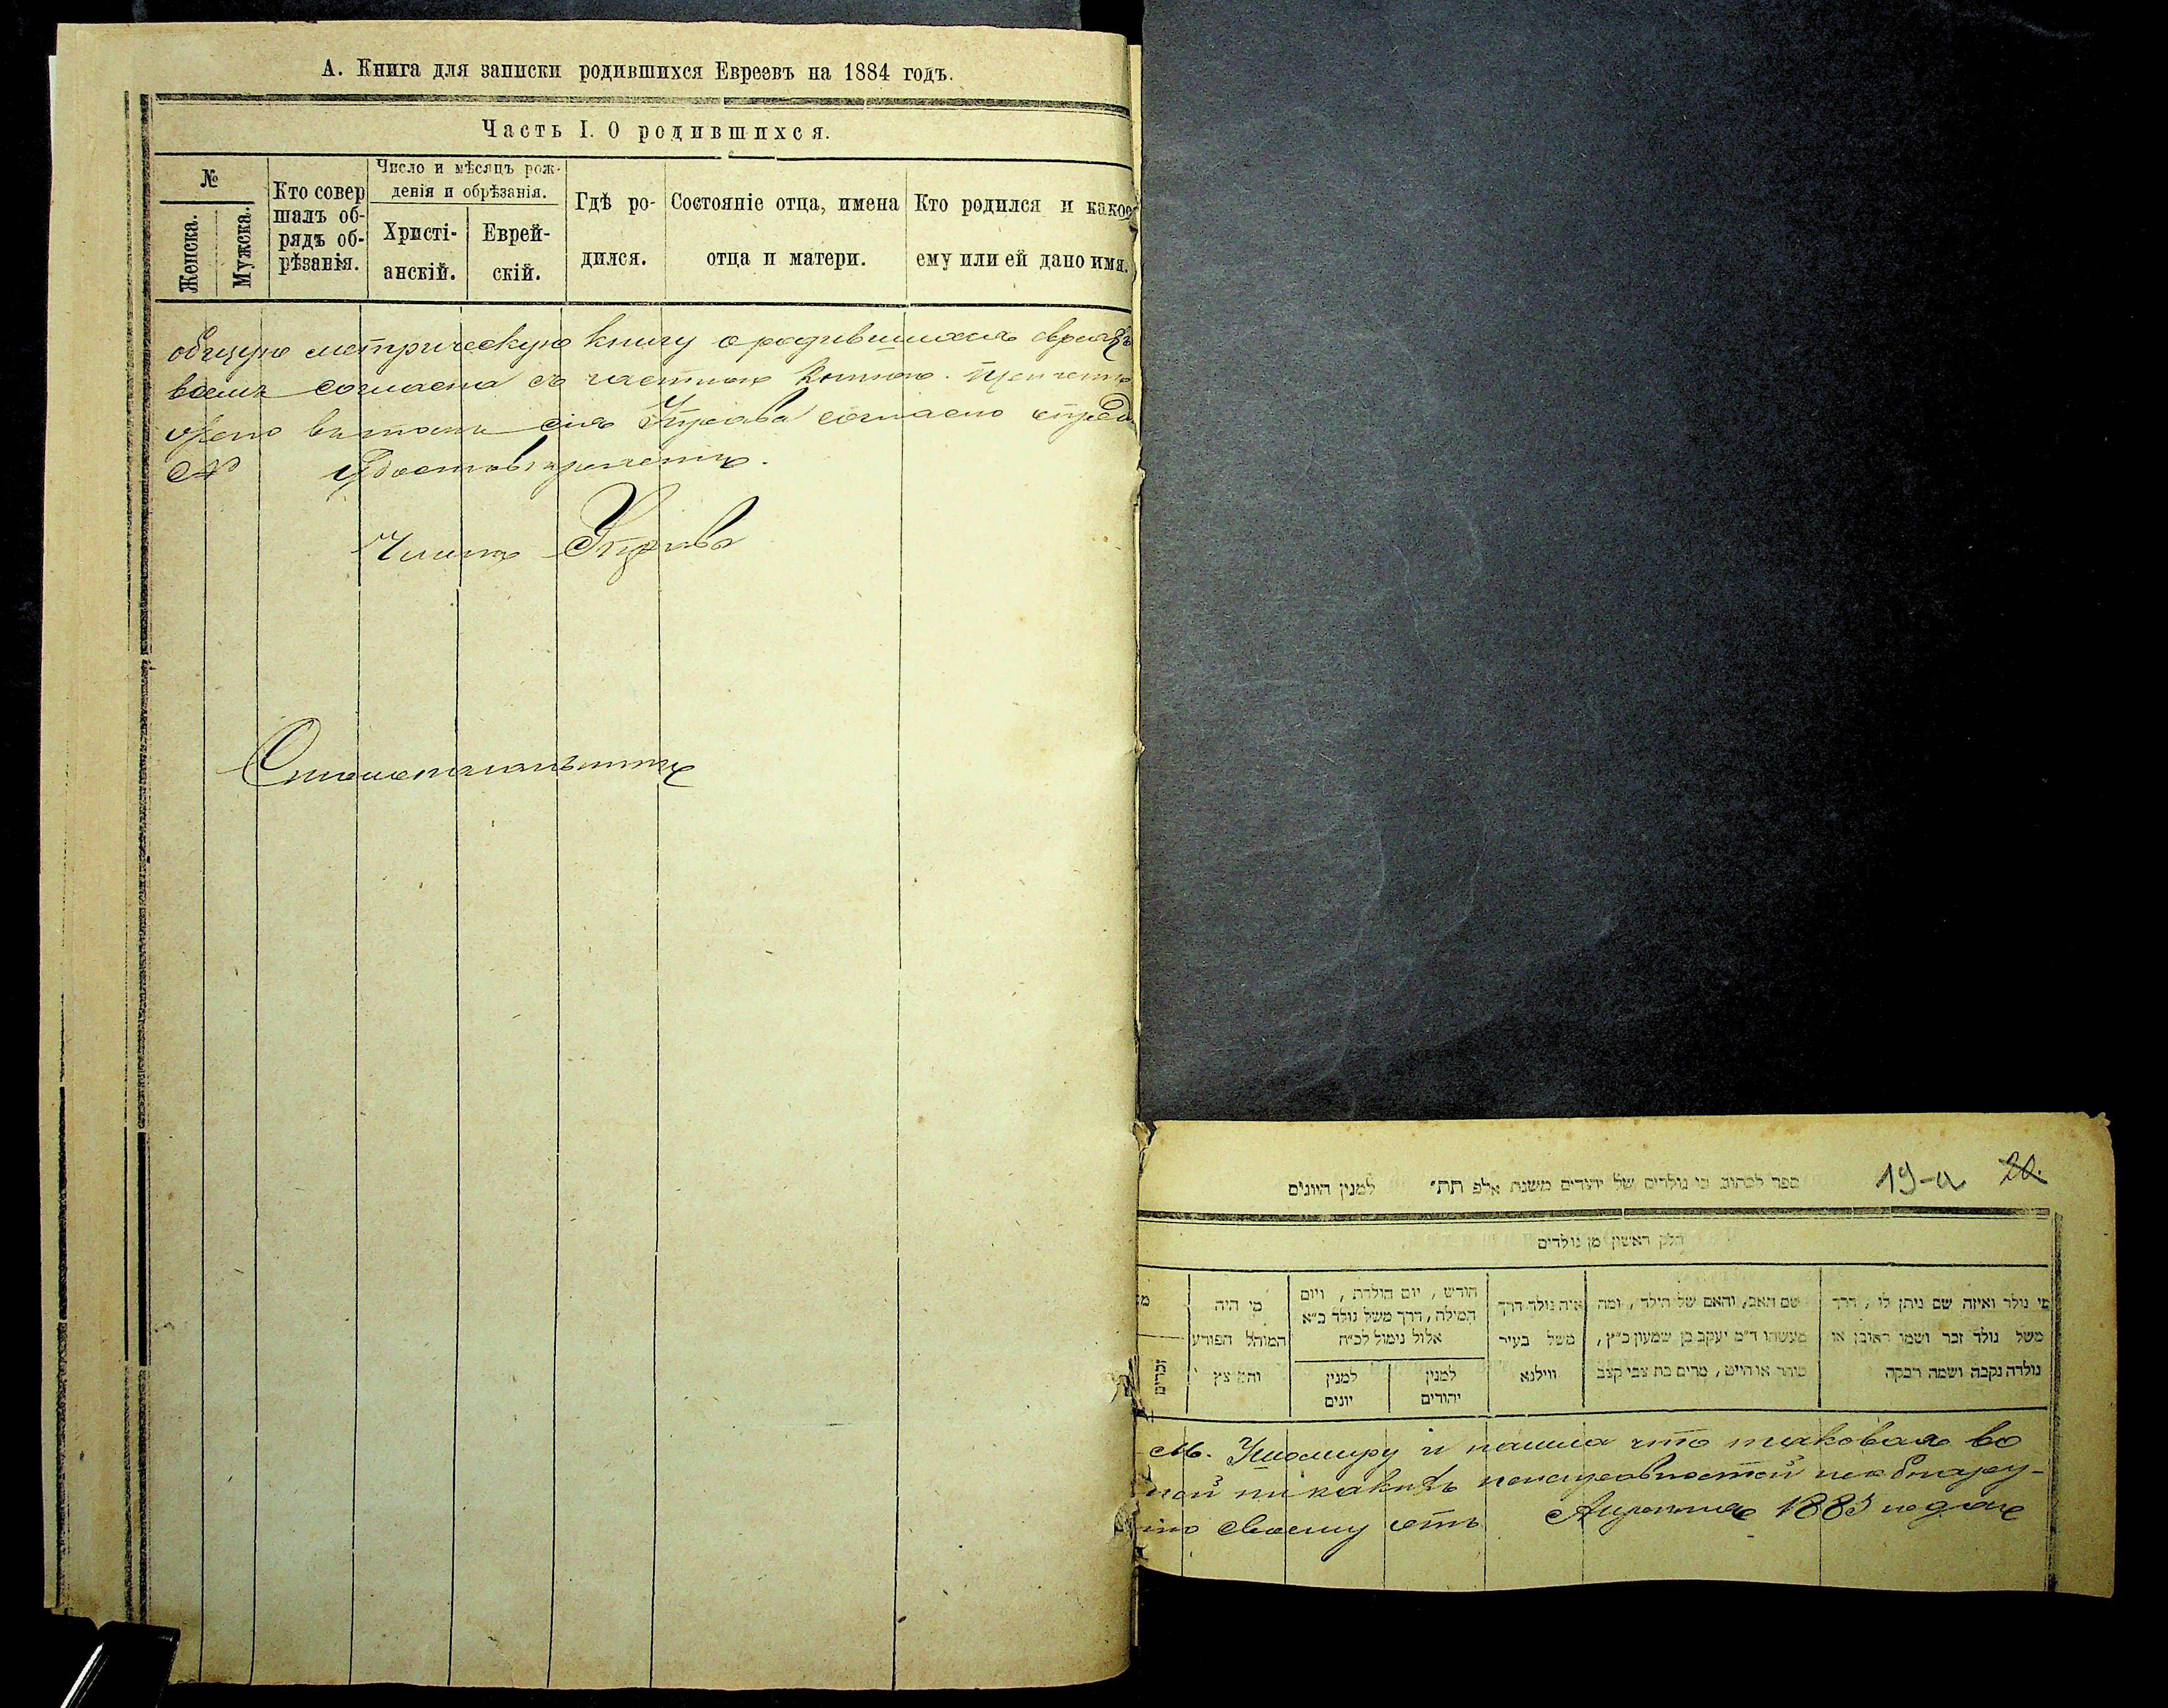 А. Книга для записки родившихся Евреевъ на 1884 годъ.
Часть I. О родившихся.
№
Женска.
Мужска.
Кто совер
шалъ об-
рядъ об-
рѣзанія.
Число и мѣсяцъ рож-
денія и обрѣзанія.
Христі-
анскій.
Еврей-
скій.
Гдѣ ро-
дился.
Состояніе отца, имена
отца и матери.
Кто родился и какое
ему или ей дано имя.
общую метрическую книгу о родившихся евреяхъ
всемъ согласна съ частною книгою.
Управа согласно
Удостовѣреніе.
Членъ Управы
19-а 20.
ספר לכתוב בו נולדים של יהודים משנת אלפ תת״ למנין היונים
חלק ראשון מן נולדים
מי נולד ואיזה שם ניתן לו, דרך
משל נולד זכר ושמו ראובן או
נולדה נקבה ושמה רבקה
שם האב, והאם של הילד, ומה
מעשהו ד״מ יעקב בן שמעון כ״ץ,
סוחר או חייט, מרים בת צבי קצב
איה נולד דרך
משל בעיר
ווילנא
חודש, יום הולדת, ויום
המילה, דרך משל נולד כ״א
אלול נימול לכ״ח
למנין
יהודים
למנין
יונים
מי היה
המוהל הפורע
זכרים
м. и нашла что таковая во
ной никакихъ неисправностей не обнару-
своему отъ Апреля 1885 года